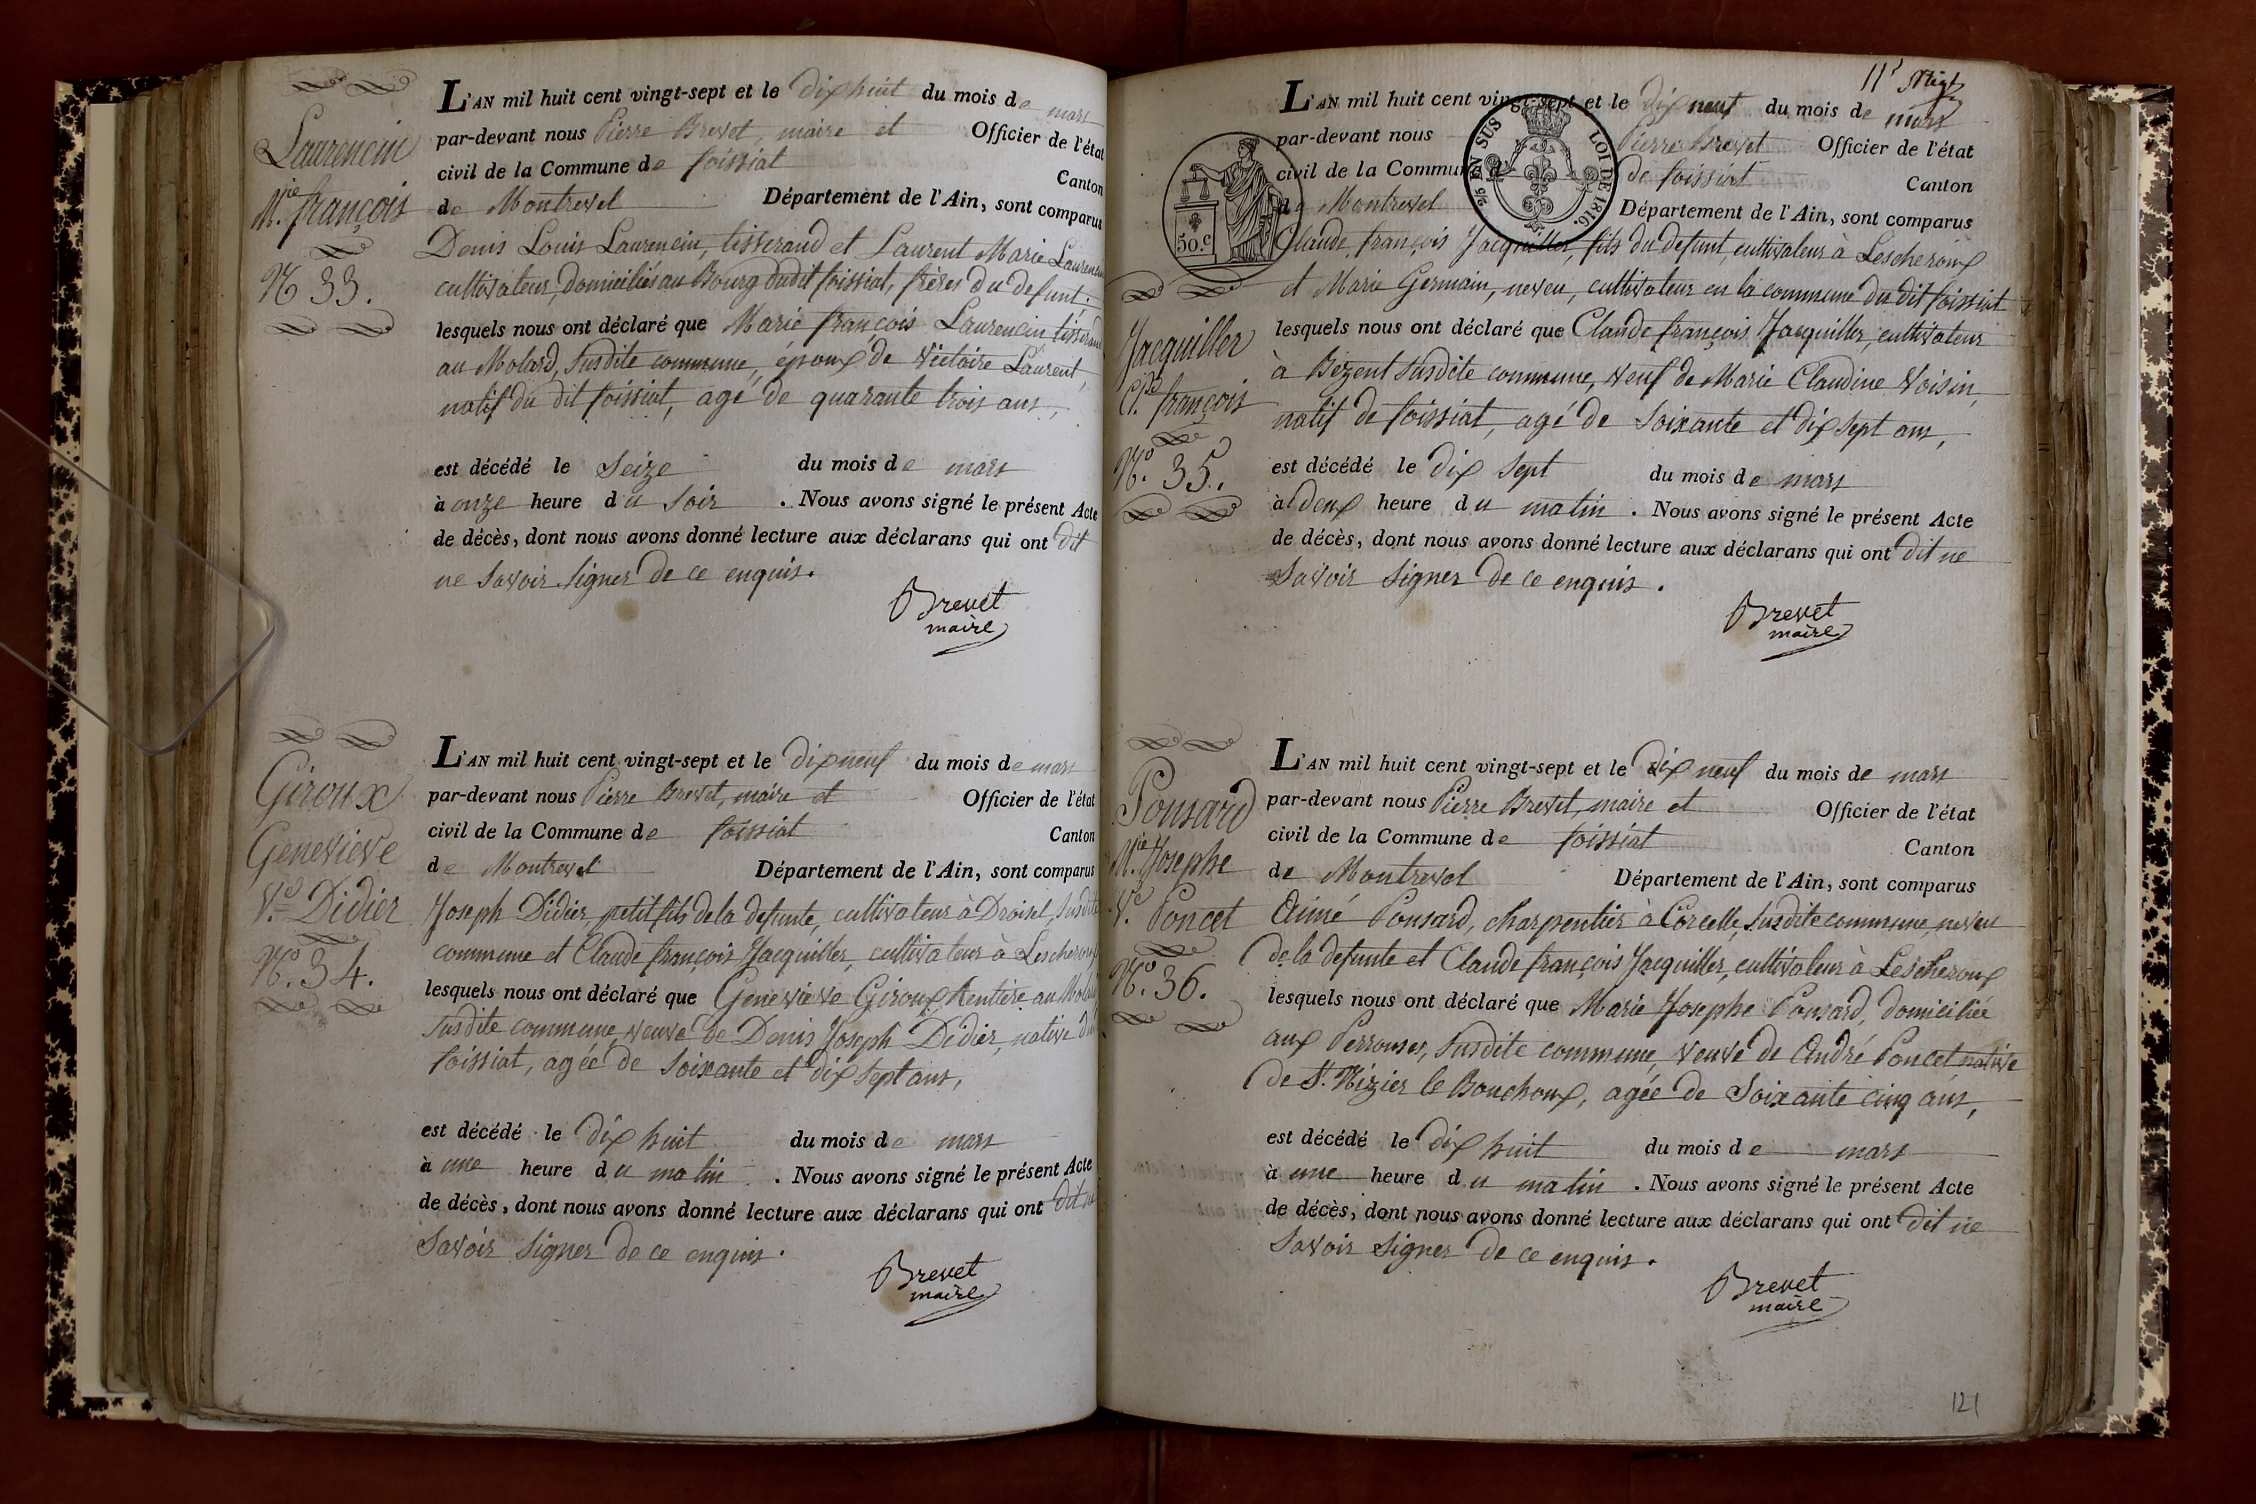 Laurencin
Mie. françois
N 33.
L'AN mil huit cent vingt-sept et le dix huit du mois de mars
par-devant nous Pierre Brevet, maire et Officier de l'état
civil de la Commune de foissiat Canton
de Montrevel Département de l'Ain, sont comparus
Denis Louis Laurencin, tisserand et Laurent Marie Laurencin
cultivateur, domiciliés au Bourg dudit foissiat, frères du defunt.
lesquels nous ont déclaré que Marie françois Laurencin tisserand
au Molard, susdite commune, époux de Victoire Laurent,
natif du dit foissiat, agé de quarante trois ans,
est décédé le seize du mois de mars
à onze heure du soir . Nous avons signé le présent Acte
de décès, dont nous avons donné lecture aux déclarans qui ont dit
ne savoir signer de ce enquis.
Brevet
maire
Giroux
Genevieve
Ve. Didier
No. 34.
L'AN mil huit cent vingt-sept et le dix neuf du mois de mars
par-devant nous Pierre Brevet, maire et Officier de l'état
civil de la Commune de foissiat Canton
de Montrevel Département de l'Ain, sont comparus
Joseph Didier, petit fils de la defunte, cultivateur à Droisel, susdite
commune et Claude françois Jacquiller, cultivateur à Lescheroux
lesquels nous ont déclaré que Genevieve Giroux, Rentière au Molard
susdite commune, veuve de Denis Joseph Didier, native du
foissiat, agée de soixante et dix sept ans,
est décédé le dix huit du mois de mars
à une heure du matin . Nous avons signé le présent Acte
de décès, dont nous avons donné lecture aux déclarans qui ont dit ne
savoir signer de ce enquis.
Brevet
maire
11e
50.c
25 EN SUS LOI DE 1816.
Jacquiller
Cde. françois
No. 35.
L'AN mil huit cent vingt-sept et le dix neuf du mois de mars
par-devant nous Pierre Brevet Officier de l'état
civil de la Commune de foissiat Canton
de Montrevel Département de l'Ain, sont comparus
Claude françois Jacquiller, fils du defunt, cultivateur à Lescheroux
et Marie Germain, neveu, cultivateur en la commune du dit foissiat
lesquels nous ont déclaré que Claude françois Jacquiller, cultivateur
à Bezent susdite commune, veuf de Marie Claudine Voisin,
natif de foissiat, agé de soixante et dix sept ans,
est décédé le dix sept du mois de mars
à deux heure du matin . Nous avons signé le présent Acte
de décès, dont nous avons donné lecture aux déclarans qui ont dit ne
savoir signer de ce enquis.
Brevet
maire
Ponsard
Mie. Josephe
Ve. Poncet
No. 36.
L'AN mil huit cent vingt-sept et le dix neuf du mois de mars
par-devant nous Pierre Brevet, maire et Officier de l'état
civil de la Commune de foissiat Canton
de Montrevel Département de l'Ain, sont comparus
Aimé Ponsard, charpentier à Corcelle, susdite commune, neveu
de la defunte et Claude françois Jacquiller, cultivateur à Lescheroux
lesquels nous ont déclaré que Marie Josephe Ponsard, domiciliée
aux Perrouses, susdite commune, veuve de André Poncet native
de St. Nizier le Bouchoux, agée de soixante cinq ans,
est décédé le dix huit du mois de mars
à une heure du matin . Nous avons signé le présent Acte
de décès, dont nous avons donné lecture aux déclarans qui ont dit ne
savoir signer de ce enquis.
Brevet
maire
121